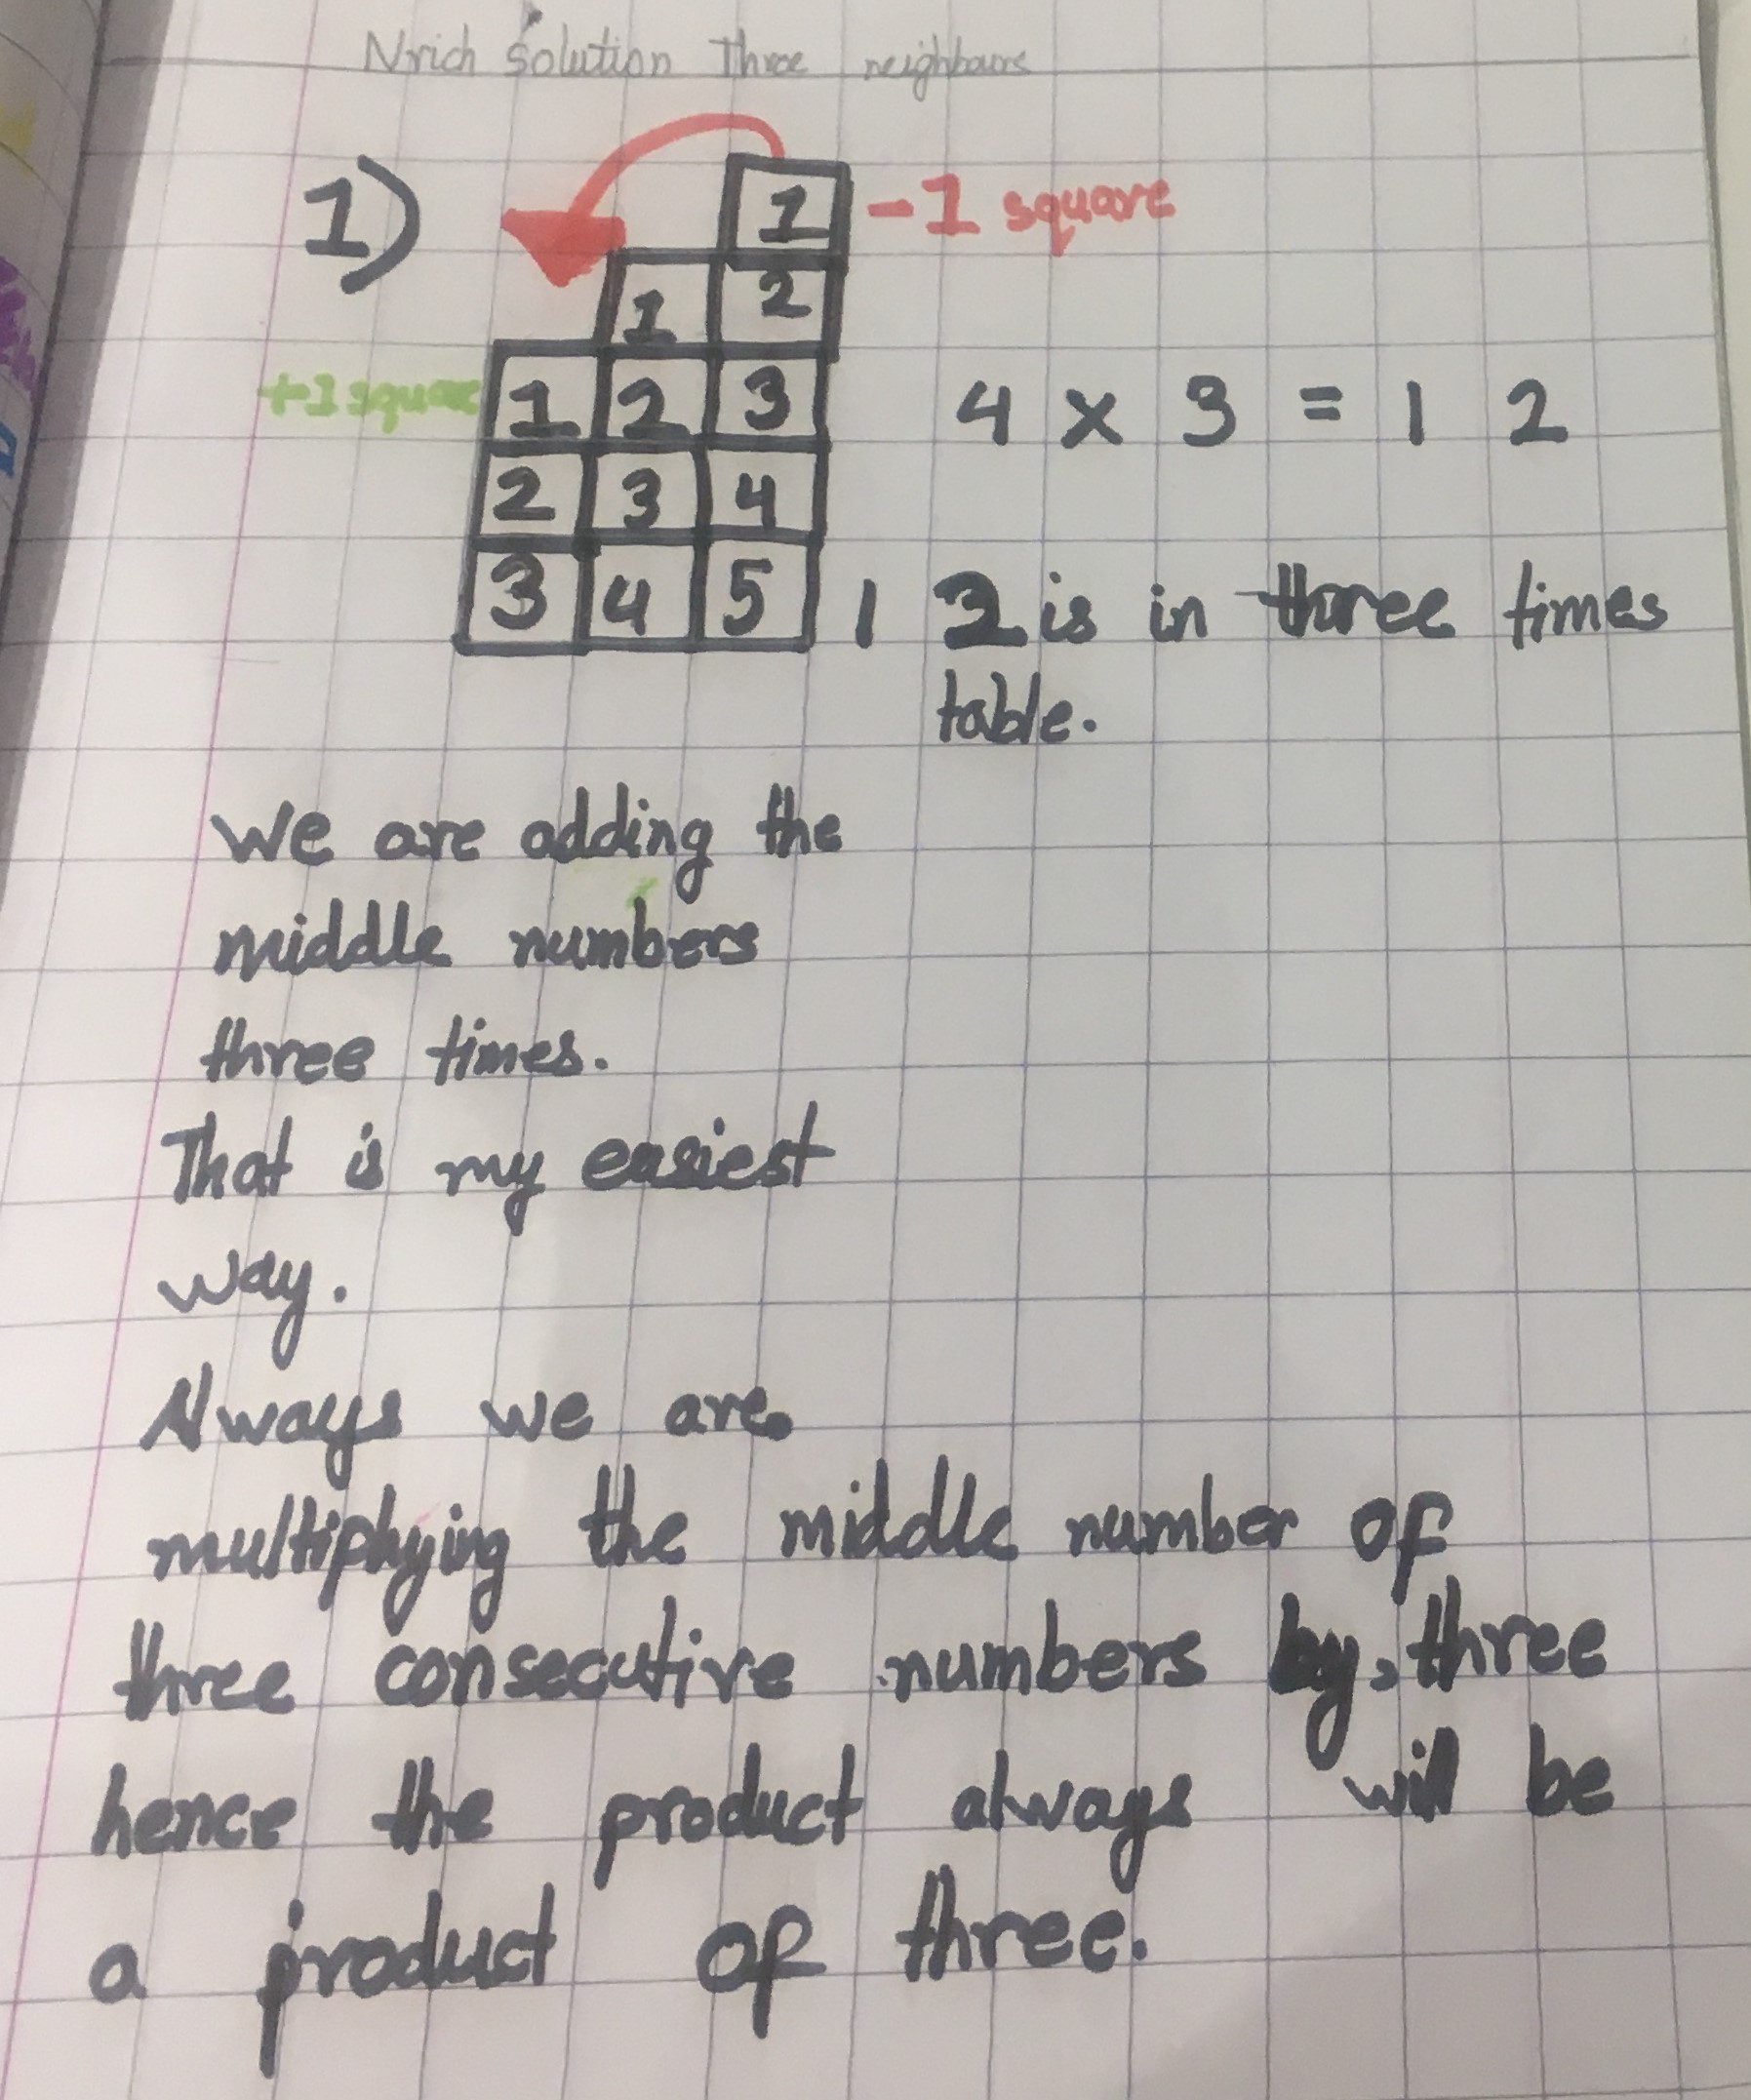 Nrich Solution Three neighbours
1)
1 -1 square
1 2
+1 square 1 2 3 4 x 3 = 1 2
2 3 4
3 4 5 1 2 is in three times
table.
We are adding the
middle numbers
three times.
That is my easiest
way.
Always we are
multiplying the middle number of
three consecutive numbers by, three
hence the product always will be
a product of three.